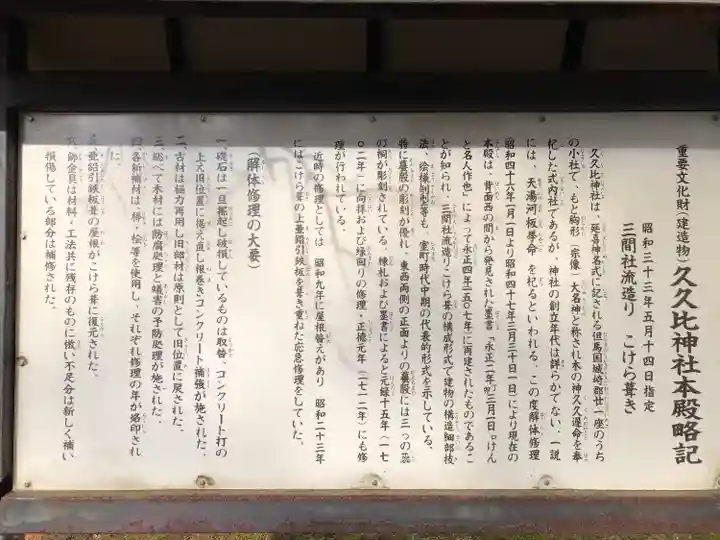 重要文化財(建造物)久久比神社本殿略記
昭和三十三年五月十四日指定
三間社流造り こけら葺き
久久比神社は、延喜神名式に記される但馬国城崎郡廿一座のうち
の小社で、もと胸形(宗像)大名神と称され木の神久久遅命を奉
祀した式内社であるが、神社の創立年代は詳らかでない、一説
には、天湯河板挙命を祀るといわれる、この度解体修理
(昭和四十六年一月一日より昭和四十七年三月三十日一日)により現在の
本殿は、背面西の間から発見された墨書「永正二年 三月一日『けん
と名人作也』によって永正四年(一五〇七年)に再建されたものであるこ
とが知られ、三間社流造りこけら葺の構成形式で建物の構造細部技
法、絵様刳形等も、室町時代中期の代表的形式を示している、
特に蟇股の彫刻が優れ、東西両側の正面よりの蟇股には三つの蕊
の桐が彫刻されている、棟札および墨書によると元録十五年(一七
〇二年)に向拝および縁回りの修理・正徳元年(一七一一年)にも修
理が行われている、
近時の修理としては 昭和九年に屋根替えがあり 昭和二十三年
にはこけら葺の上亜鉛引鉄板を葺き重ねた応急修理をしていた。
(解体修理の大要)
一、礎石は一旦掘起し破損しているものは取替、コンクリート打の
上え旧位置に据え直し根巻きコンクリート補強が施された、
二、古材は極力再用し旧部材は原則として旧位置に戻された、
三、総べて木材には防腐処理と蟻害の予防処理が施された、
四、各新補材は、欅・桧等を使用し、それぞれ修理の年が烙印され
た、
五、亜鉛引鉄板葺の屋根がこけら葺に復元された、
六、錺金具は材料・工法共に残存のものに倣い不足分は新しく補い
損傷している部分は補修された、